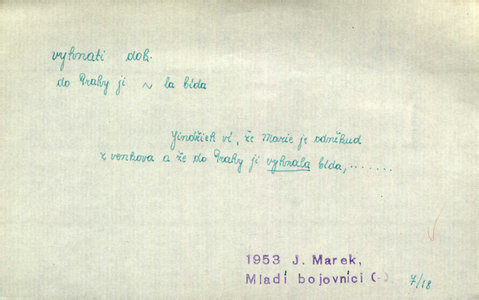 vyhnati dok.
do Prahy ji ~ la bída
Jindřich ví, že Marie je odněkud
z venkova a že do Prahy ji vyhnala bída, .......
1953 J. Marek,
Mladí bojovníci (-) 7/18